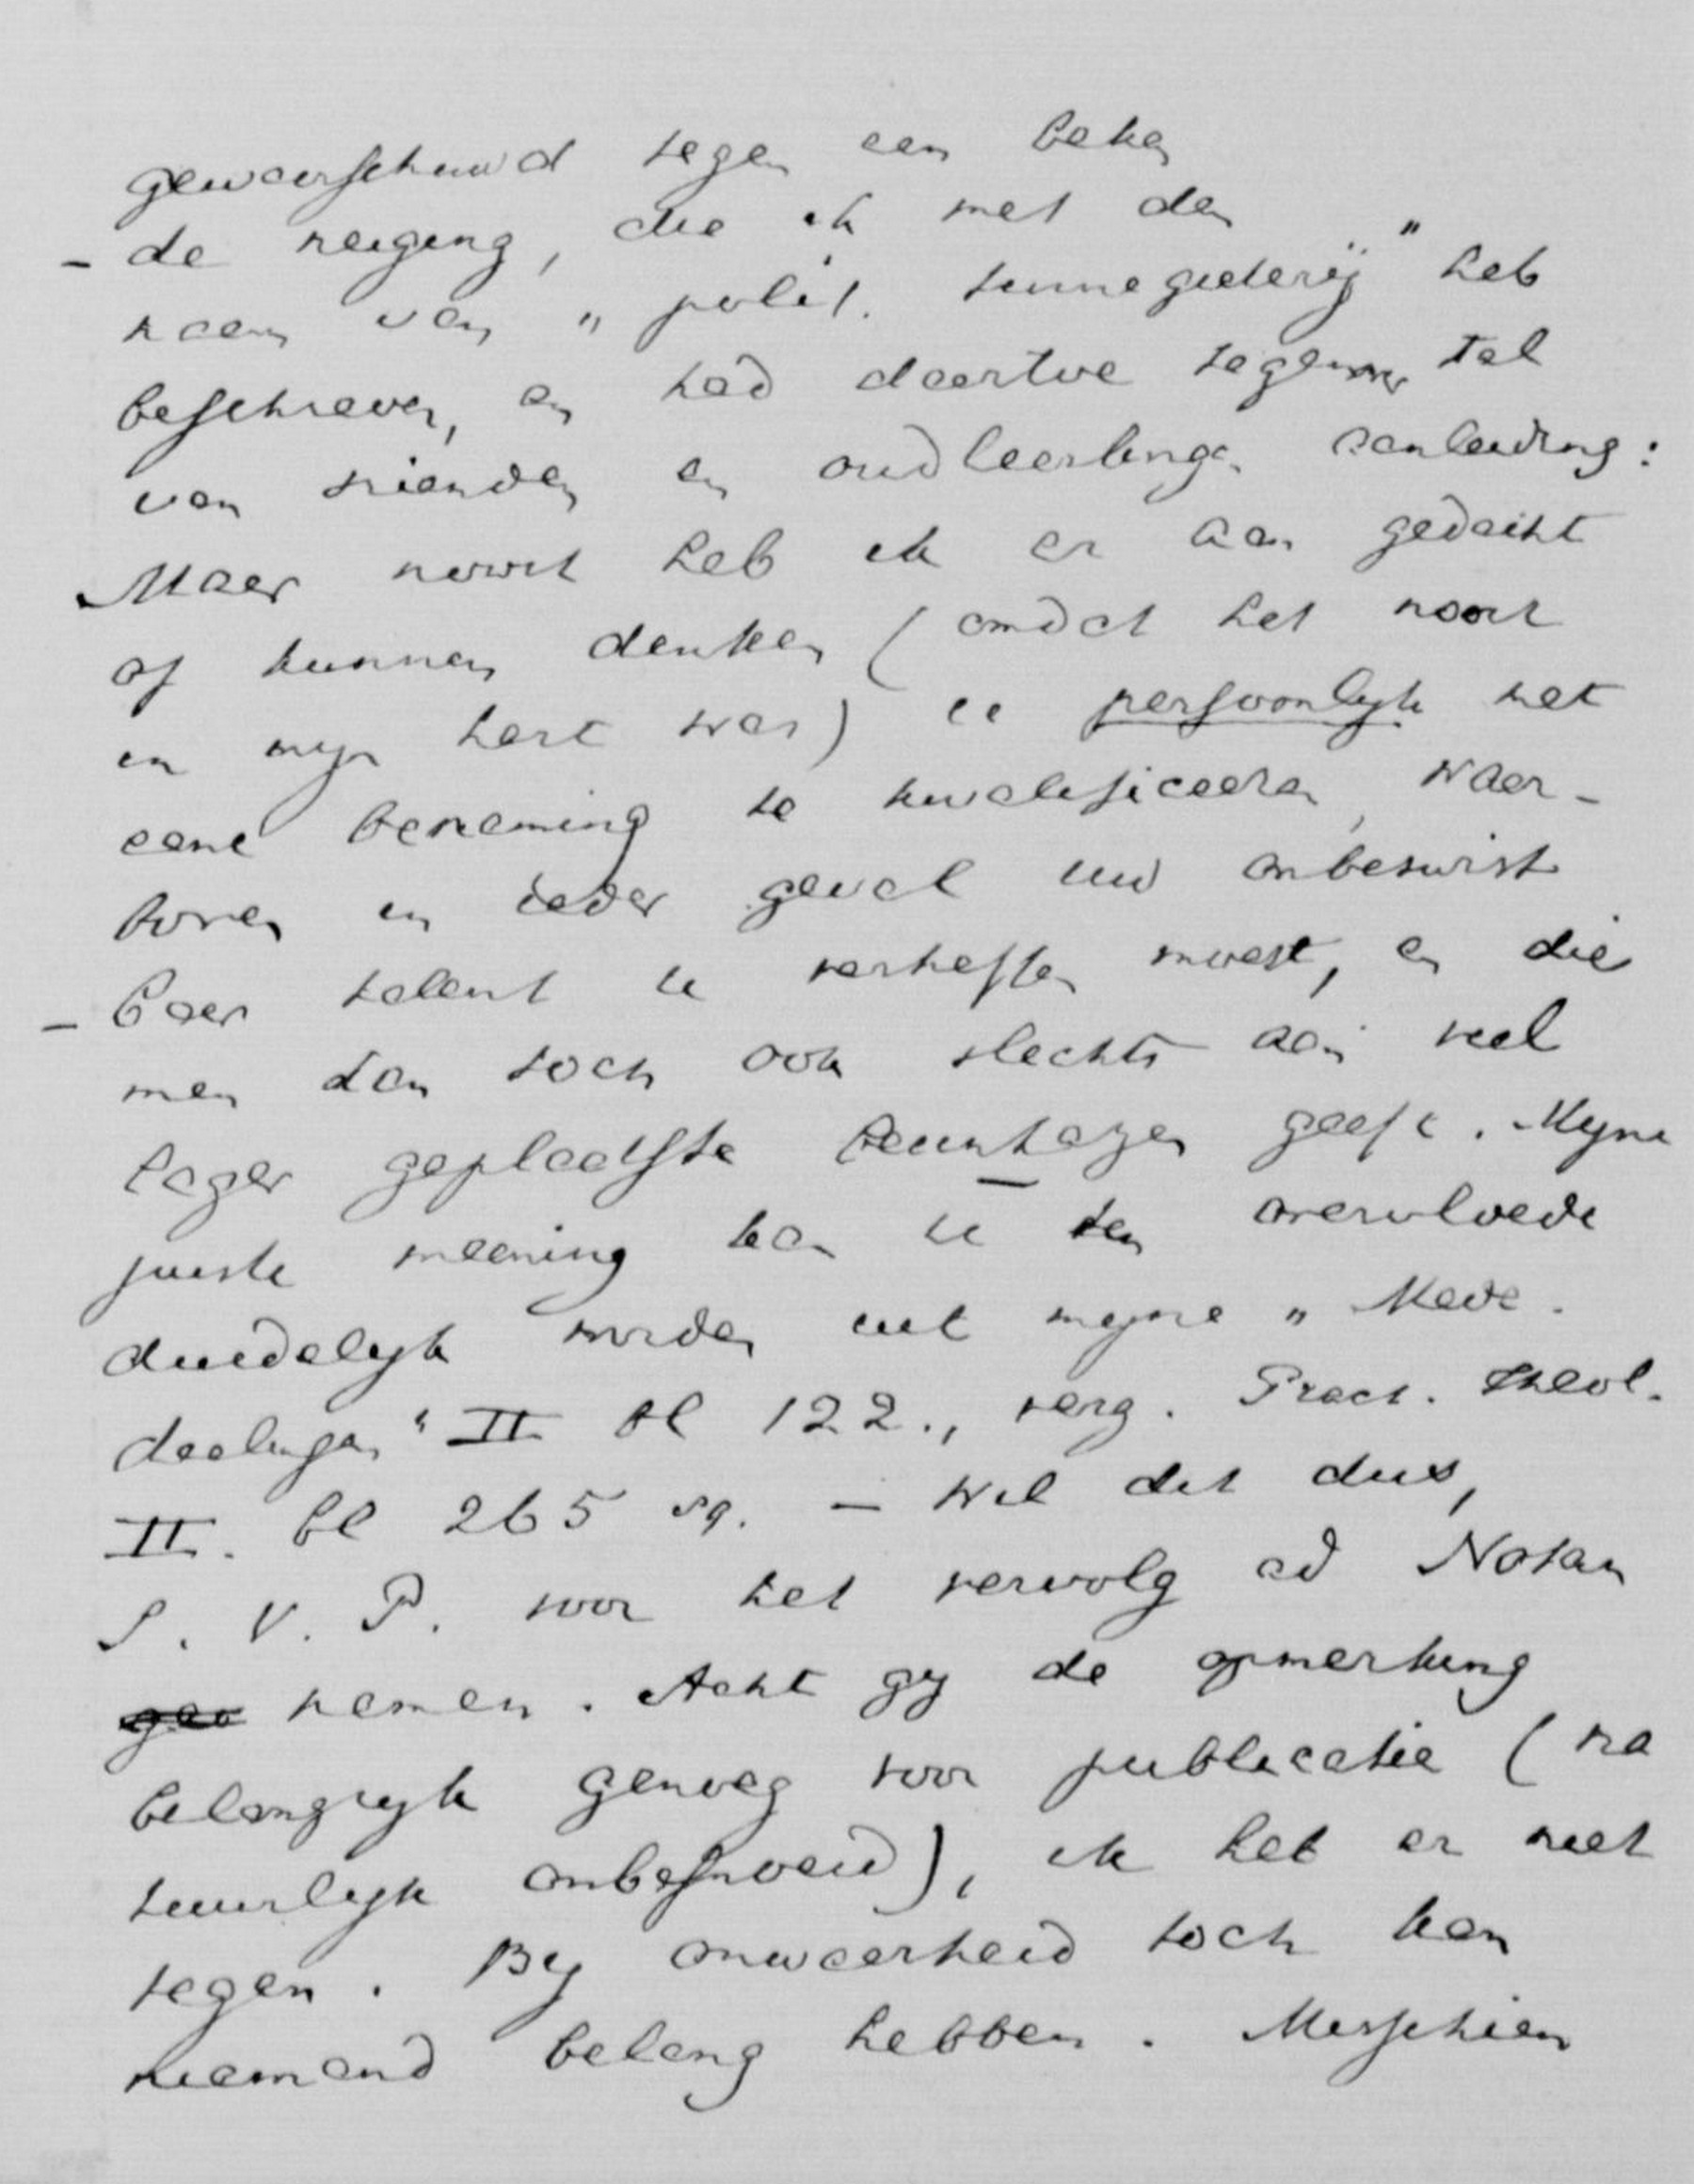 gewaarschuwd tegen een beken
- de neiging, die ik met den
naam van „polit. tinnegieterij" heb
beschreven, en had daartoe tegenover tal
van vrienden en oudleerlingen aanleiding:
Maar nooit heb ik er aan gedacht
of kunnen denken (omdat het nooit
in mijn hart was) U persoonlijk met
eene benaming te kwalificeeren, waar-
boven in ieder geval uw onbetwist
- baar talent U verheffen moest, en die
men dan toch ook slechts aan veel
lager geplaatste beunhazen geeft. Mijne
juiste meening kan U ten overvloede
duidelijk worden uit mijne „Mede.
deelingen" II bl 122., verg. Pract. Theol.
II. bl 265 sq. — Wil dit dus,
S. V. P. voor het vervolg ad Notam
nemen. Acht gij de opmerking
belangrijk genoeg voor publicatie (na
tuurlijk onbesnoeid), ik heb er niet
tegen. Bij onwaarheid toch kan
niemand belang hebben. Misschien